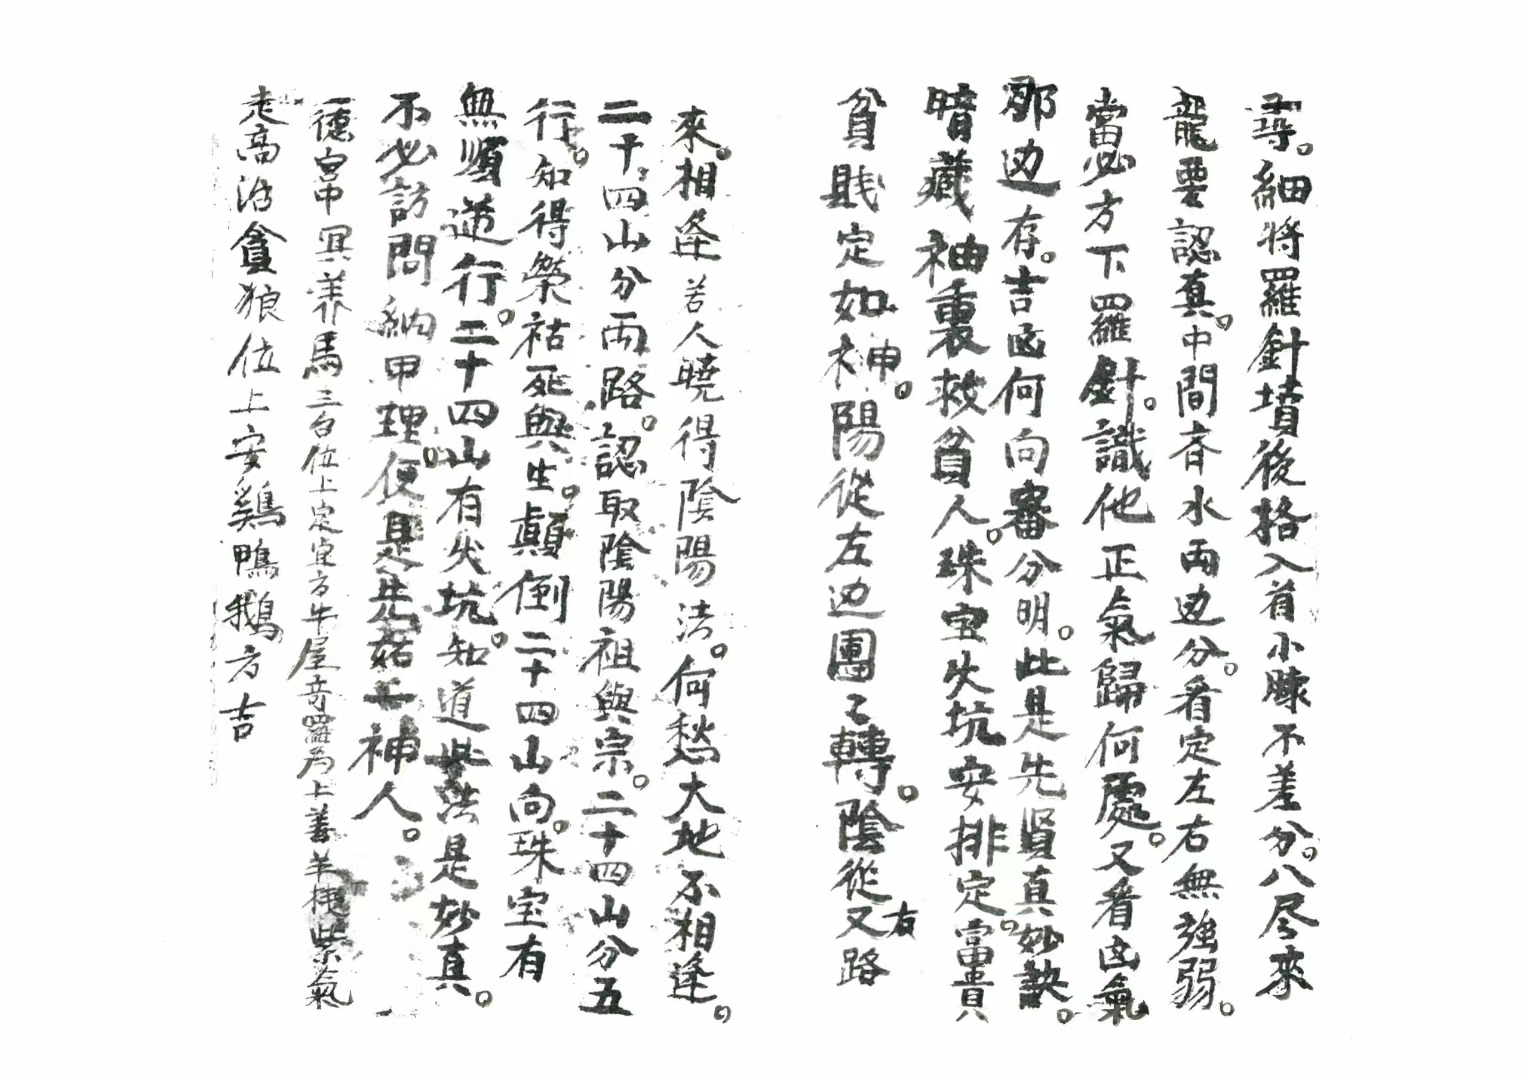 尋。細將羅針墳後格入首小脈不差分。八尽來
龍要認真。中間脊水兩边分。看定左右無強弱。
當必方下羅針。識他正氣歸何處。又看凶氣
那边存。吉凶何向審分明。此是先賢真妙訣。
暗藏袖裏救貧人。珠宝火坑安排定。富貴
貧賤定如神。陽從左边團々轉。陰從又右路
來。相逢若人曉得陰陽法。何愁大地不相逢。
二十四山分兩路。認取陰陽祖與宗。二十四山分五
行。知得榮祜死與生。顛倒二十四山向。珠宝有
無順逆行。二十四山有火坑。知道此法是妙真。
不必訪問納甲理。便是先茹七神人。
一德宮中巽养馬三台位上定宜方牛屋奇羅為上善羊棧紫氣
走高治貪狼位上安鷄鴨鵝方吉